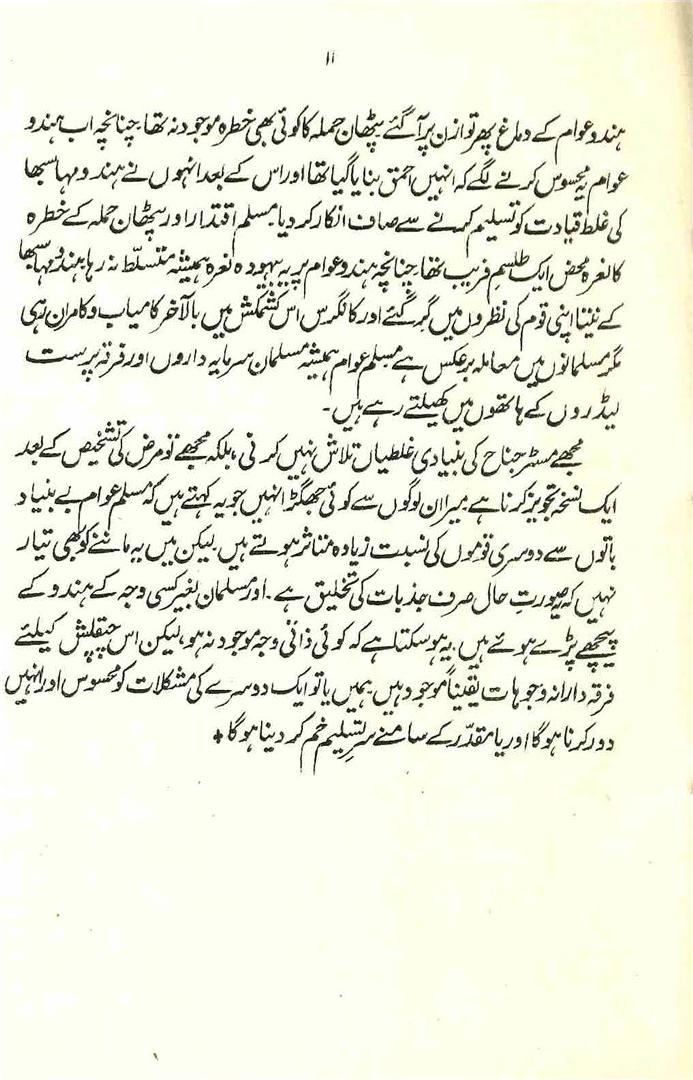 ۱۱
ہندو عوام کے دماغ پھر توازن پر آ گئے پٹھان حملہ کا کوئی بھی خطرہ موجود نہ تھا۔ چنانچہ اب ہندو
عوام یہ محسوس کرنے لگے کہ انہیں احمق بنایا گیا تھا اور اس کے بعد انہوں نے ہندو مہا سبھا
کی غلط قیادت کو تسلیم کرنے سے صاف انکار کر دیا۔ مسلم اقتدار اور پٹھان حملہ کے خطرہ
کا نعرہ محض ایک طلسمِ فریب تھا۔ چنانچہ ہندو عوام پر یہ بیہودہ نعرہ ہمیشہ متسلّط نہ رہا۔ ہندو مہا سبھا
کے نیتا اپنی قوم کی نظروں میں گر گئے اور کانگرس اس کشمکش میں بالآخر کامیاب و کامران رہی
مگر مسلمانوں میں معاملہ برعکس ہے۔ مسلم عوام ہمیشہ مسلمان سرمایہ داروں اور فرقہ پرست
لیڈروں کے ہاتھوں میں کھیلتے رہے ہیں۔
مجھے مسٹر جناح کی بنیادی غلطیاں تلاش نہیں کرنی، بلکہ مجھے تو مرض کی تشخیص کے بعد
ایک نسخہ تجویز کرنا ہے۔ میرا ان لوگوں سے کوئی جھگڑا نہیں جو یہ کہتے ہیں کہ مسلم عوام بے بنیاد
باتوں سے دوسری قوموں کی نسبت زیادہ متاثر ہوتے ہیں۔ لیکن میں یہ ماننے کو بھی تیار
نہیں کہ یہ صورتِ حال صرف جذبات کی تخلیق ہے۔ اور مسلمان بغیر کسی وجہ کے ہندو کے
پیچھے پڑے ہوئے ہیں۔ یہ ہو سکتا ہے کہ کوئی ذاتی وجہ موجود نہ ہو، لیکن اس چپقلش کیلئے
فرقہ دارانہ وجوہات یقیناً موجود ہیں۔ ہمیں یا تو ایک دوسرے کی مشکلات کو محسوس اور انہیں
دور کرنا ہوگا اور یا مقدّر کے سامنے سرِ تسلیم خم کر دینا ہوگا ✦